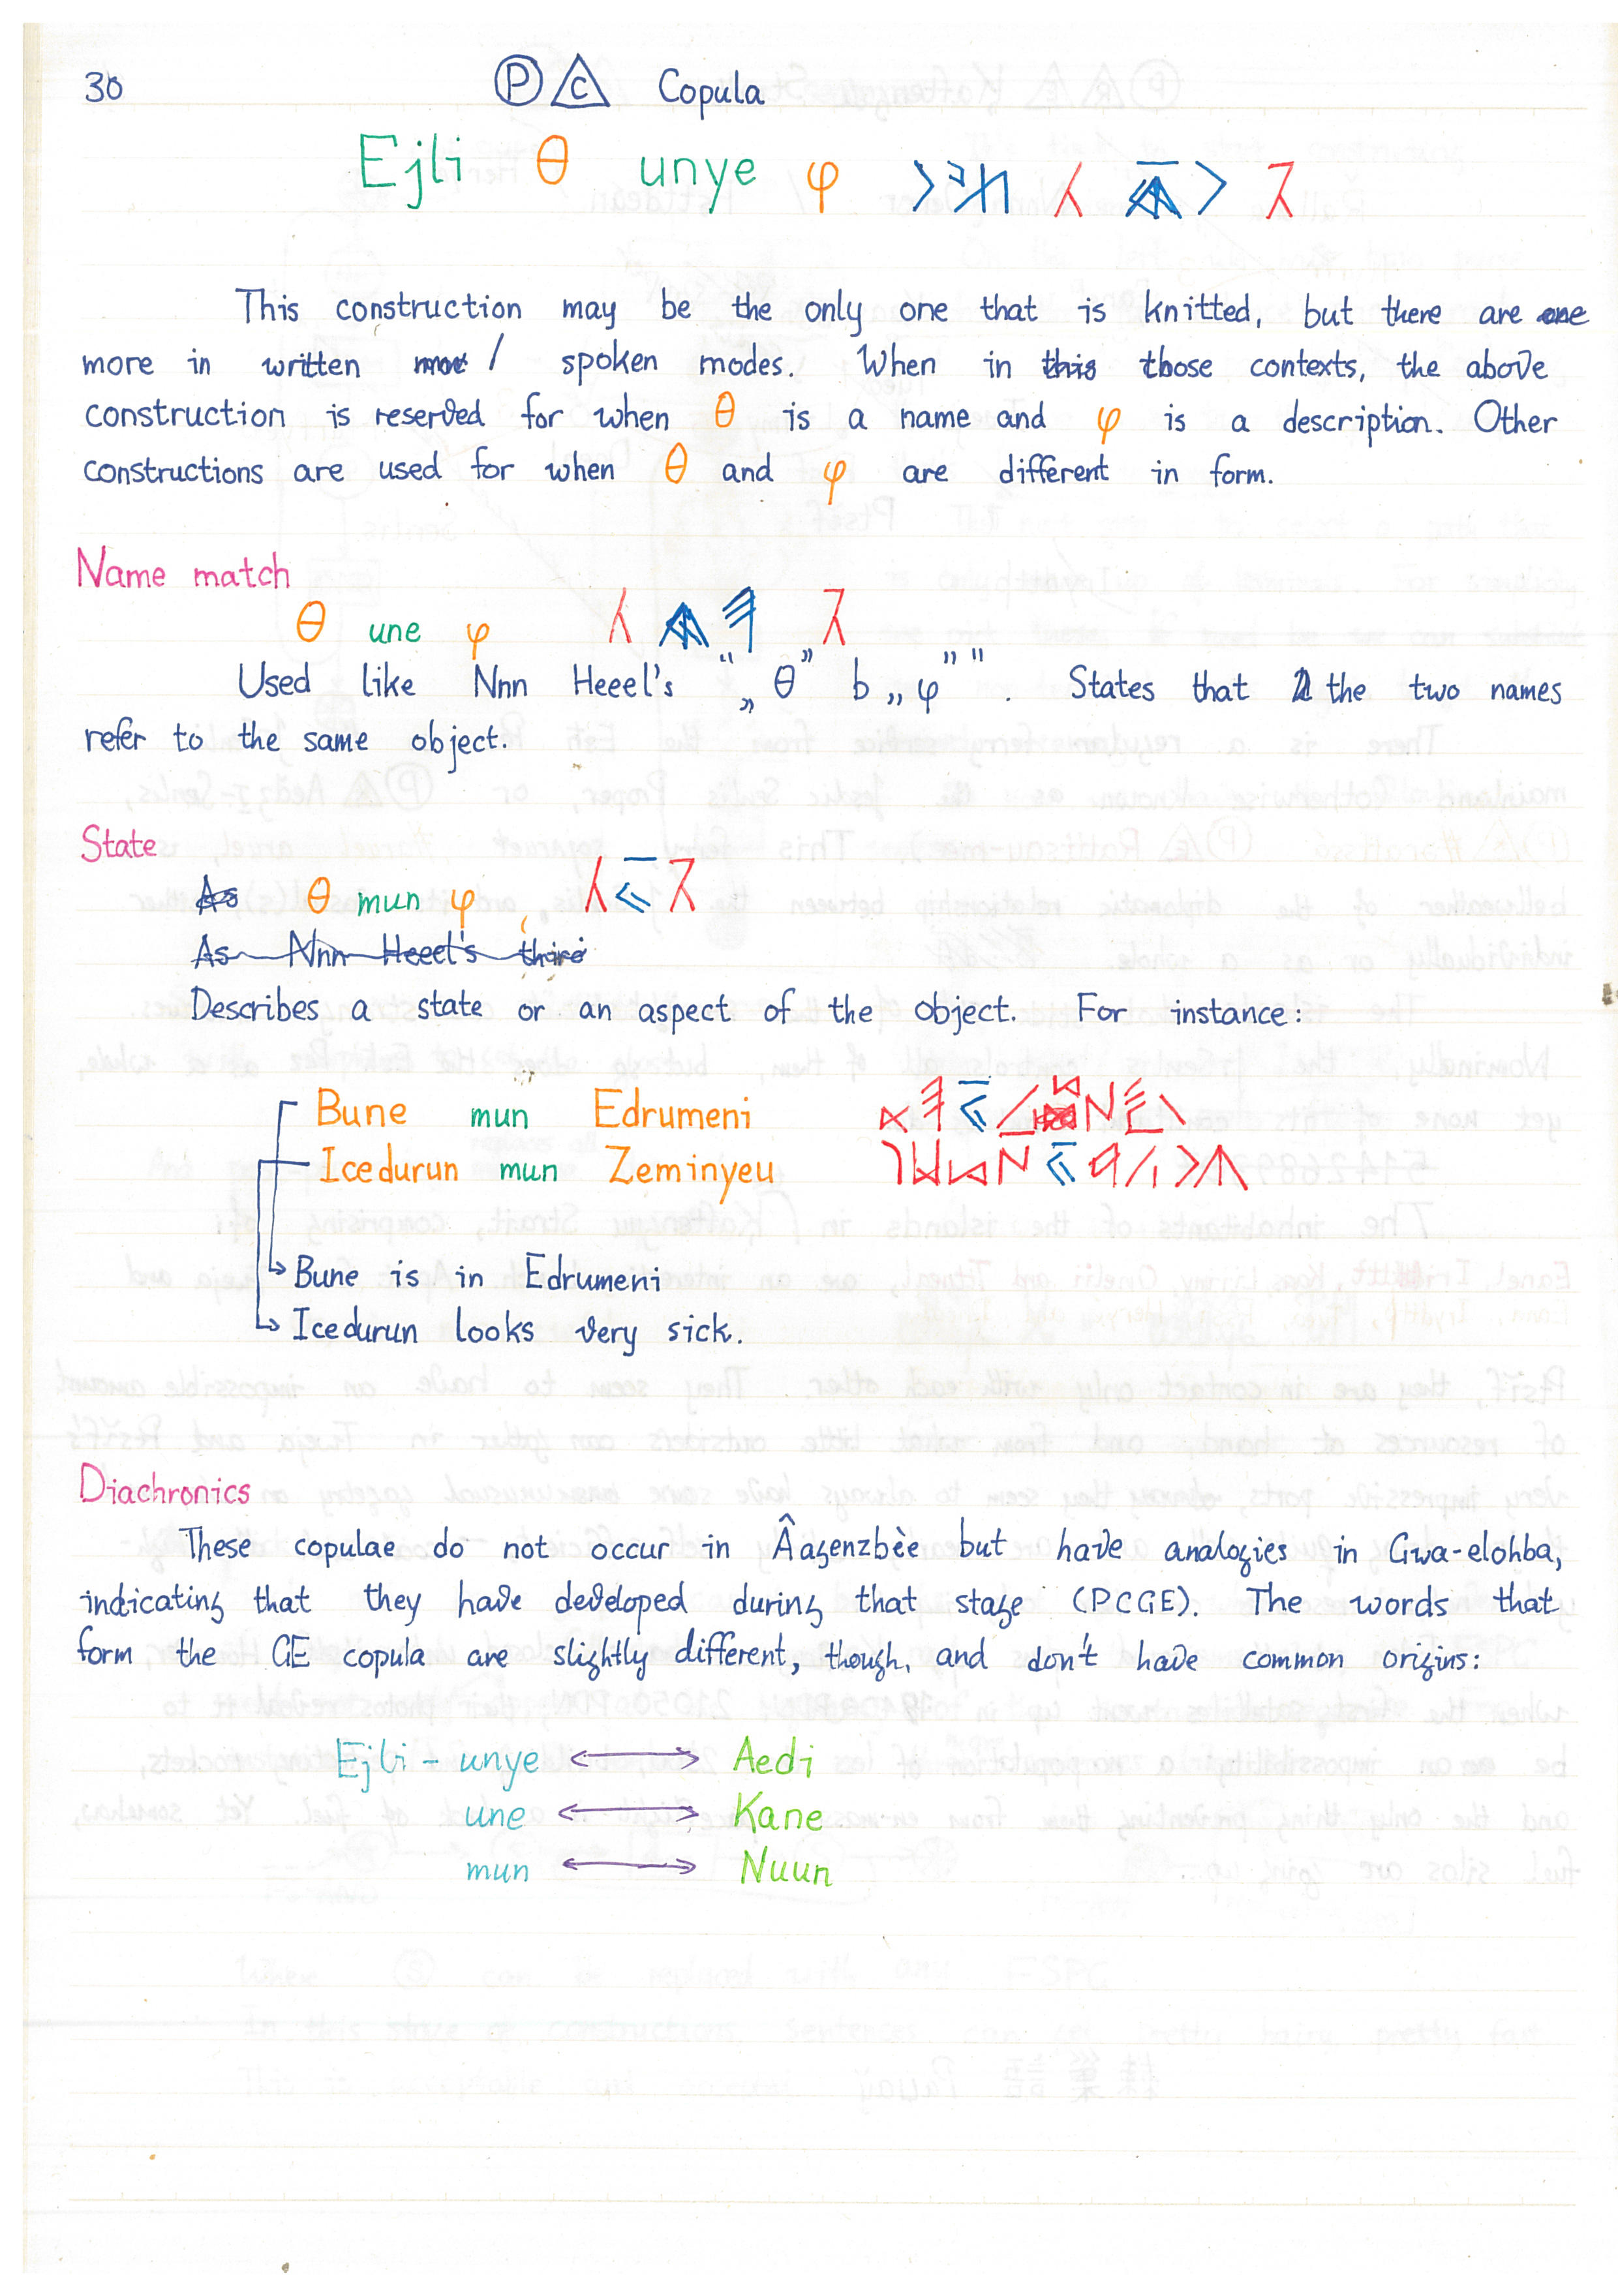 30 Ⓟ C Copula
Ejli θ unye φ
This construction may be the only one that is knitted, but there are
more in written / spoken modes. When in those contexts, the above
construction is reserved for when θ is a name and φ is a description. Other
constructions are used for when θ and φ are different in form.
Name match
θ une φ
Used like Nnn Heeel's "„θ” b „φ”". States that the two names
refer to the same object.
State
θ mun φ
As Nnn Heeel's
Describes a state or an aspect of the object. For instance:
Bune mun Edrumeni
Icedurun mun Zeminyeu
Bune is in Edrumeni
Icedurun looks very sick.
Diachronics
These copulae do not occur in Âagenzbèe but have analogies in Gwa-elohba,
indicating that they have developed during that stage (PCGE). The words that
form the GE copula are slightly different, though, and don't have common origins:
Ejli - unye ⟷ Aedi
une ⟷ Kane
mun ⟷ Nuun